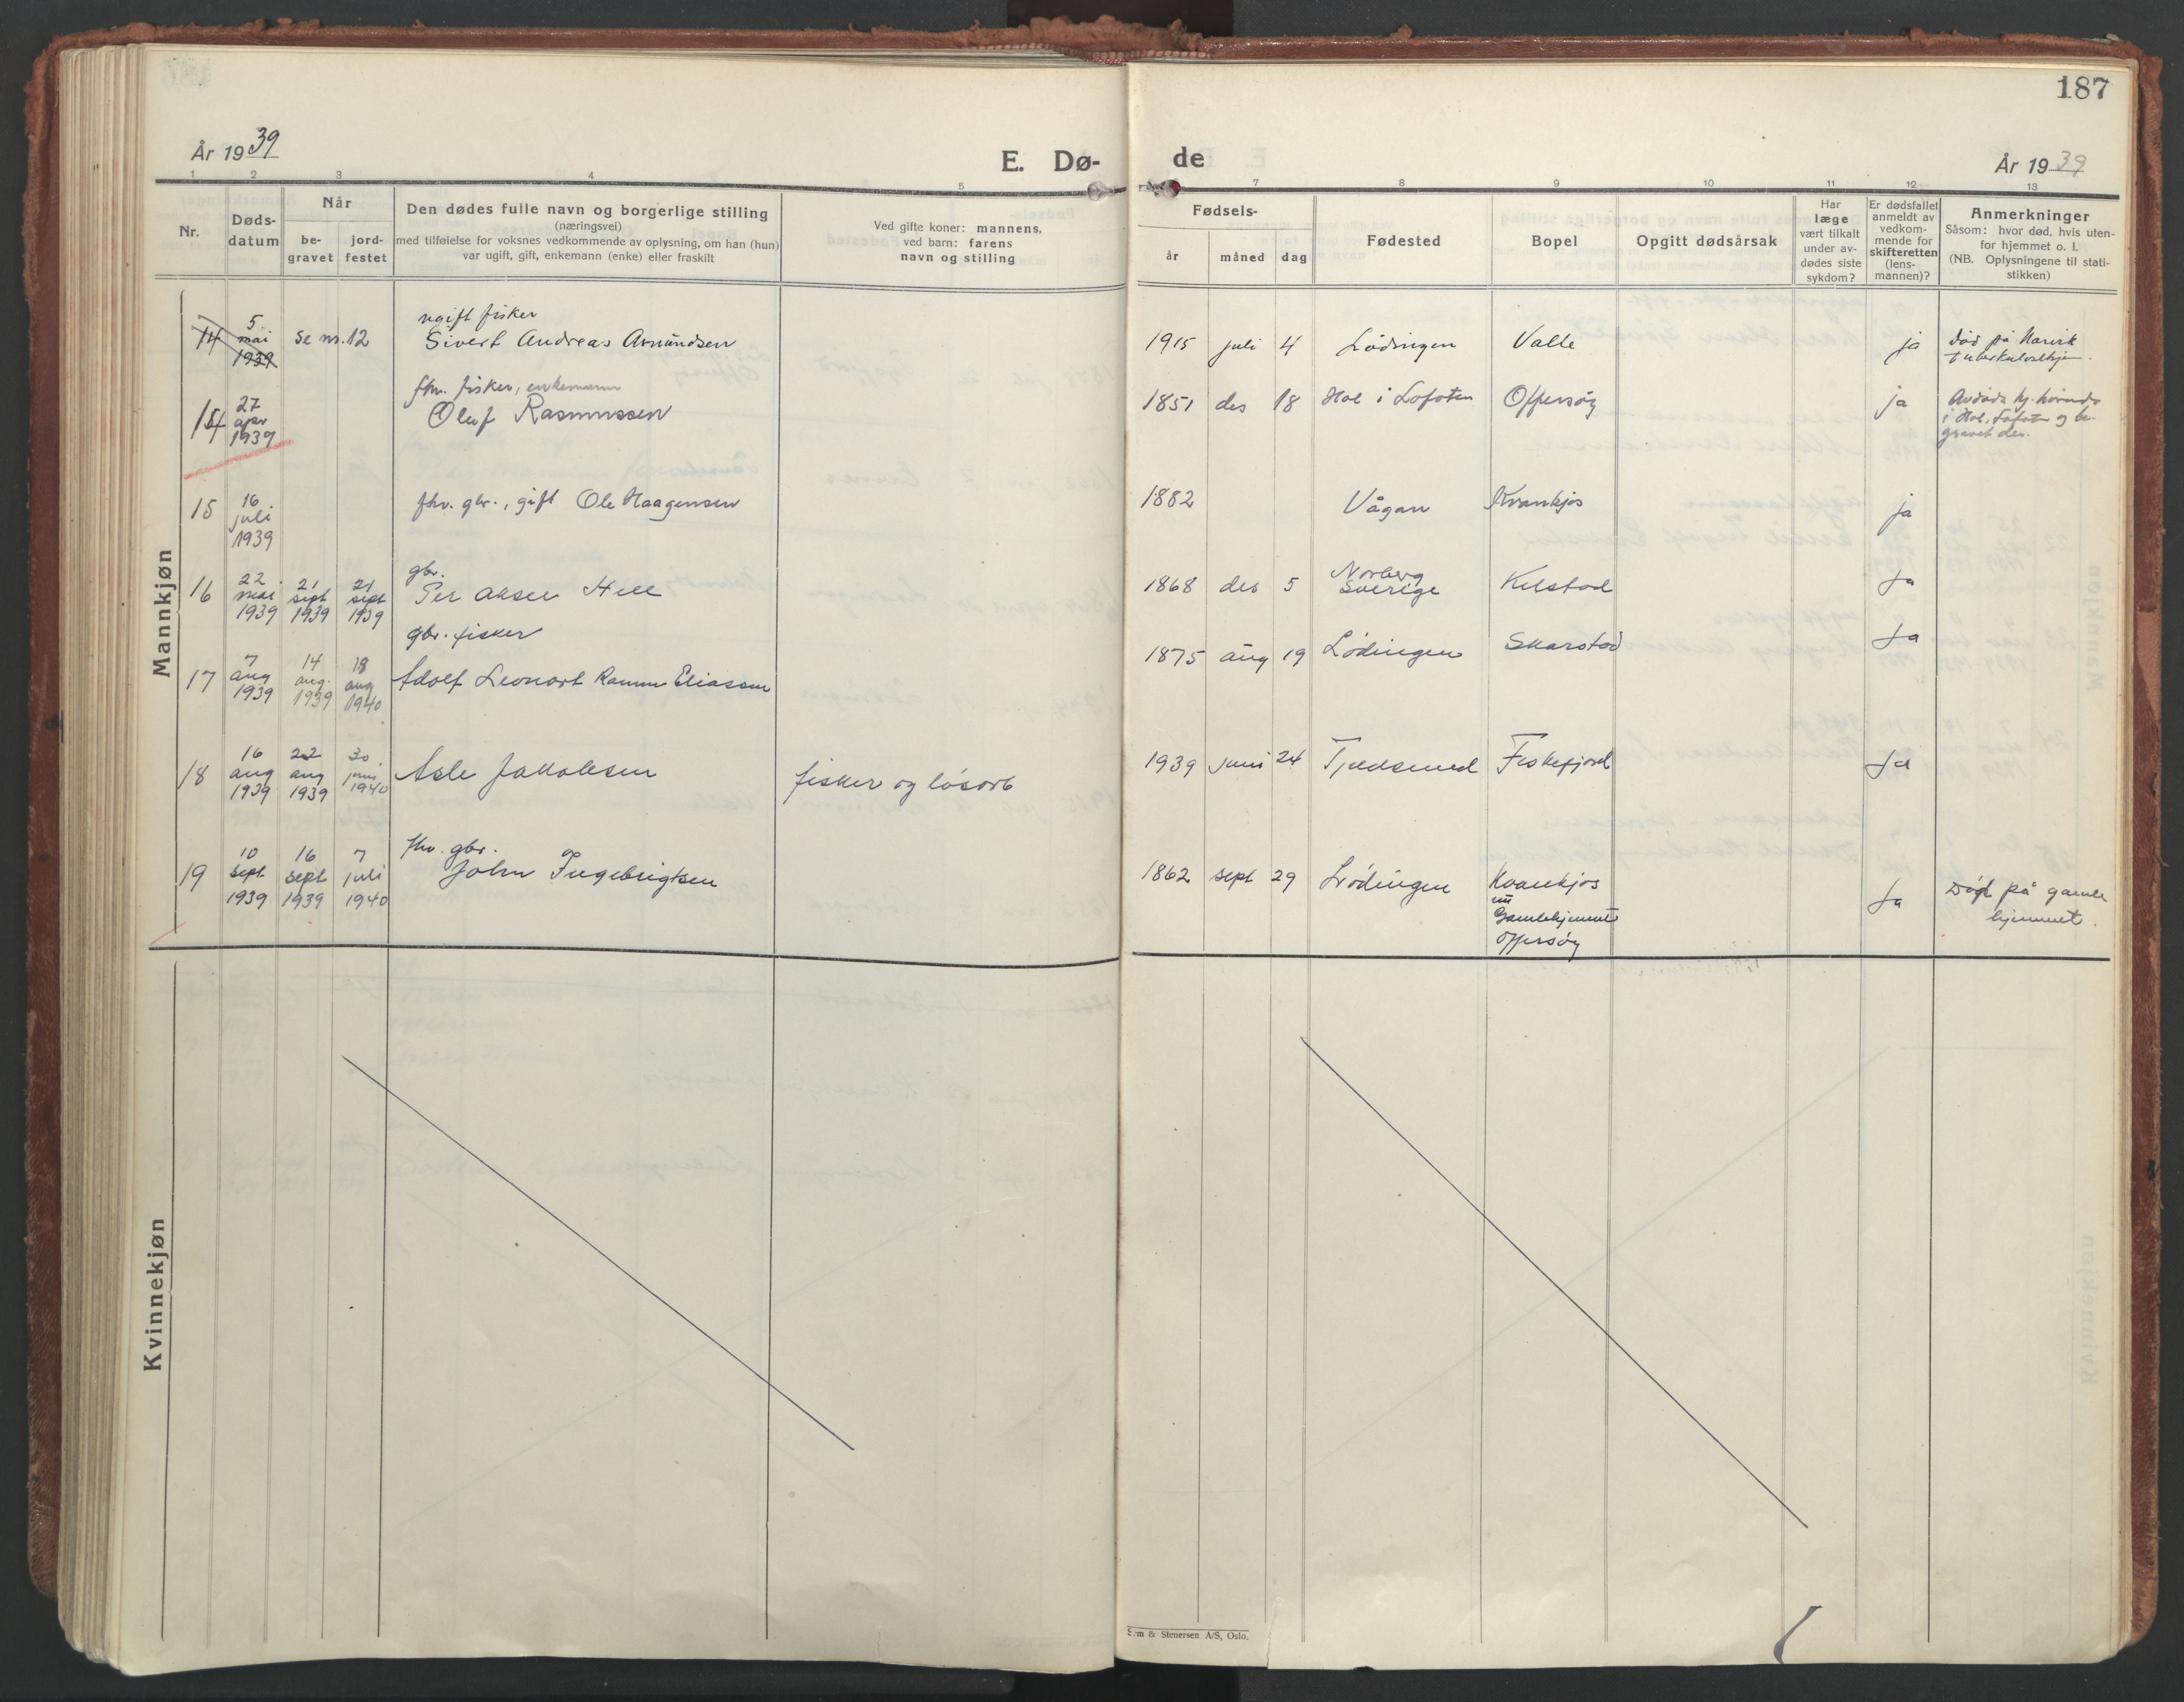 187
År 1939
E. Dø-
de
År 1939
1 2 3 4 5 7 8 9 10 11 12 13
Nr.
Døds-
datum
Når
be-
gravet
jord-
festet
Den dødes fulle navn og borgerlige stilling
(næringsvei)
med tilføielse for voksnes vedkommende av oplysning, om han (hun)
var ugift, gift, enkemann (enke) eller fraskilt
Ved gifte koner: mannens,
ved barn: farens
navn og stilling
Fødsels-
år måned dag
Fødested
Bopel
Opgitt dødsårsak
Har
læge
vært tilkalt
under av-
dødes siste
sykdom?
Er dødsfallet
anmeldt av
vedkom-
mende for
skifteretten
(lens-
mannen)?
Anmerkninger
Såsom: hvor død, hvis uten-
for hjemmet o. l.
(NB. Oplysningene til stati-
stikken)
Mannkjøn
ugift fisker
14 5 mai 1939 se nr. 12 Sivert Andreas Amundsen 1915 juli 4 Lødingen Valle ja død på Narvik
tuberkulosehjem.
fhv. fisker, enkemann
14 27 apr 1939 Oluf Rasmussen 1851 des 18 Hol i Lofoten Offersøy ja
i Hol, Lofoten og be-
gravet der.
15 16 juli 1939 fhv. gbr., gift Ole Haagensen 1882 Vågan Kvankjos ja
gbr.
16 22 mai 1939 21 sept 1939 21 sept 1939 Per Aksel Hell 1868 des 5 Norberg
Sverige Kelstad ja
gbr. fisker
17 7 aug 1939 14 aug. 1939 18 aug 1940 Adolf Leonart Ramm Eliassen 1875 aug 19 Lødingen Skarstad ja
18 16 aug 1939 22 aug 1939 30. juni 1940 Asle Jakobsen fisker og løsarb 1939 juni 24 Tjeldsund Fiskefjord ja
fhv. gbr.
19 10 sept. 1939 16 sept 1939 7 juli 1940 John Ingebrigtsen 1862 sept 29 Lødingen Kvankjos
nu
Gamlehjemmet
Offersøy ja Død på gamle
hjemmet.
Kvinnekjøn
Sem & Stenersen A/S, Oslo.